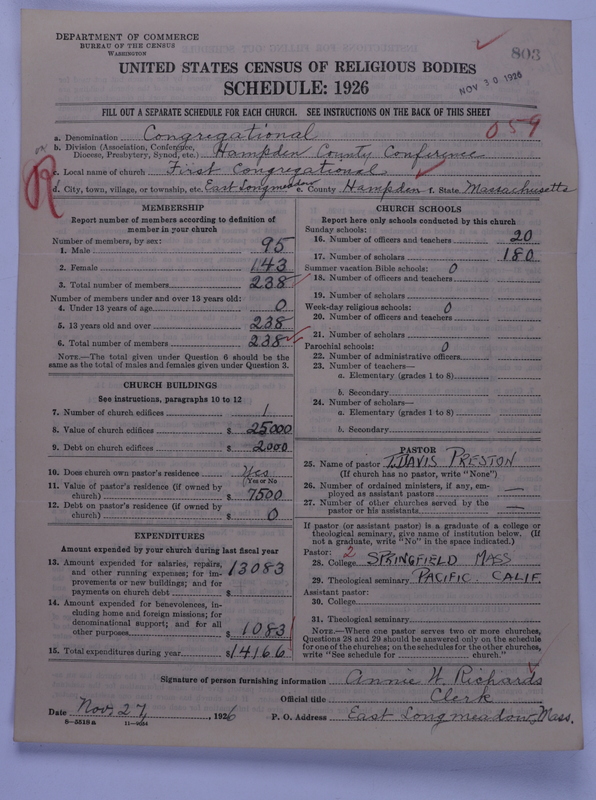 DEPARTMENT OF COMMERCE
BUREAU OF THE CENSUS
WASHINGTON
803
NOV 30 1926
UNITED STATES CENSUS OF RELIGIOUS BODIES
SCHEDULE: 1926
FILL OUT A SEPARATE SCHEDULE FOR EACH CHURCH. SEE INSTRUCTIONS ON THE BACK OF THIS SHEET
a. Denomination Congregational 059
b. Division (Association, Conference, Diocese, Presbytery, Synod, etc.) Hampden County Conference
c. Local name of church First Congregational
R
d. City, town, village, or township, etc. East Longmeadow e. County Hampden f. State Massachusetts
MEMBERSHIP
Report number of members according to definition of
member in your church
Number of members, by sex:
1. Male 95
2. Female 143
3. Total number of members 238
Number of members under and over 13 years old:
4. Under 13 years of age 0
5. 13 years old and over 238
6. Total number of members 238
NOTE.—The total given under Question 6 should be the
same as the total of males and females given under Question 3.
CHURCH BUILDINGS
See instructions, paragraphs 10 to 12
7. Number of church edifices 1
8. Value of church edifices $ 25000
9. Debt on church edifices $ 2000
10. Does church own pastor's residence Yes
(Yes or No)
11. Value of pastor's residence (if owned by
church) $ 7500
12. Debt on pastor's residence (if owned by
church) $ 0
EXPENDITURES
Amount expended by church during last fiscal year
13. Amount expended for salaries, repairs,
and other running expenses; for im-
provements or new buildings; and for
payments on church debt $ 13083
14. Amount expended for benevolences, in-
cluding home and foreign missions; for
denominational support; and for all
other purposes $ 1083
15. Total expenditures during year $ 14166
CHURCH SCHOOLS
Report here only schools conducted by this church
Sunday schools:
16. Number of officers and teachers 20
17. Number of scholars 180
Summer vacation Bible schools: 0
18. Number of officers and teachers
19. Number of scholars
Week-day religious schools: 0
20. Number of officers and teachers
21. Number of scholars
Parochial schools: 0
22. Number of administrative officers
23. Number of teachers—
a. Elementary (grades 1 to 8)
b. Secondary
24. Number of scholars—
a. Elementary (grades 1 to 8)
b. Secondary
PASTOR
25. Name of pastor T. DAVIS PRESTON
(If church has no pastor, write "None")
26. Number of ordained ministers, if any, em-
ployed as assistant pastors —
27. Number of other churches served by the
pastor or his assistants —
If pastor (or assistant pastor) is a graduate of a college or
theological seminary, give name of institution below. (If
not a graduate, write "No" in the space indicated.)
Pastor: 2
28. College SPRINGFIELD MASS
29. Theological seminary PACIFIC. CALIF
Assistant pastor:
30. College
31. Theological seminary
NOTE.—Where one pastor serves two or more churches,
Questions 28 and 29 should be answered only on the schedule
for one of the churches; on the schedules for the other churches,
write "See schedule for church."
Signature of person furnishing information Annie W. Richards
Official title Clerk
Date Nov 27, 1926 P. O. Address East Longmeadow, Mass.
8—5818 a 11—9034